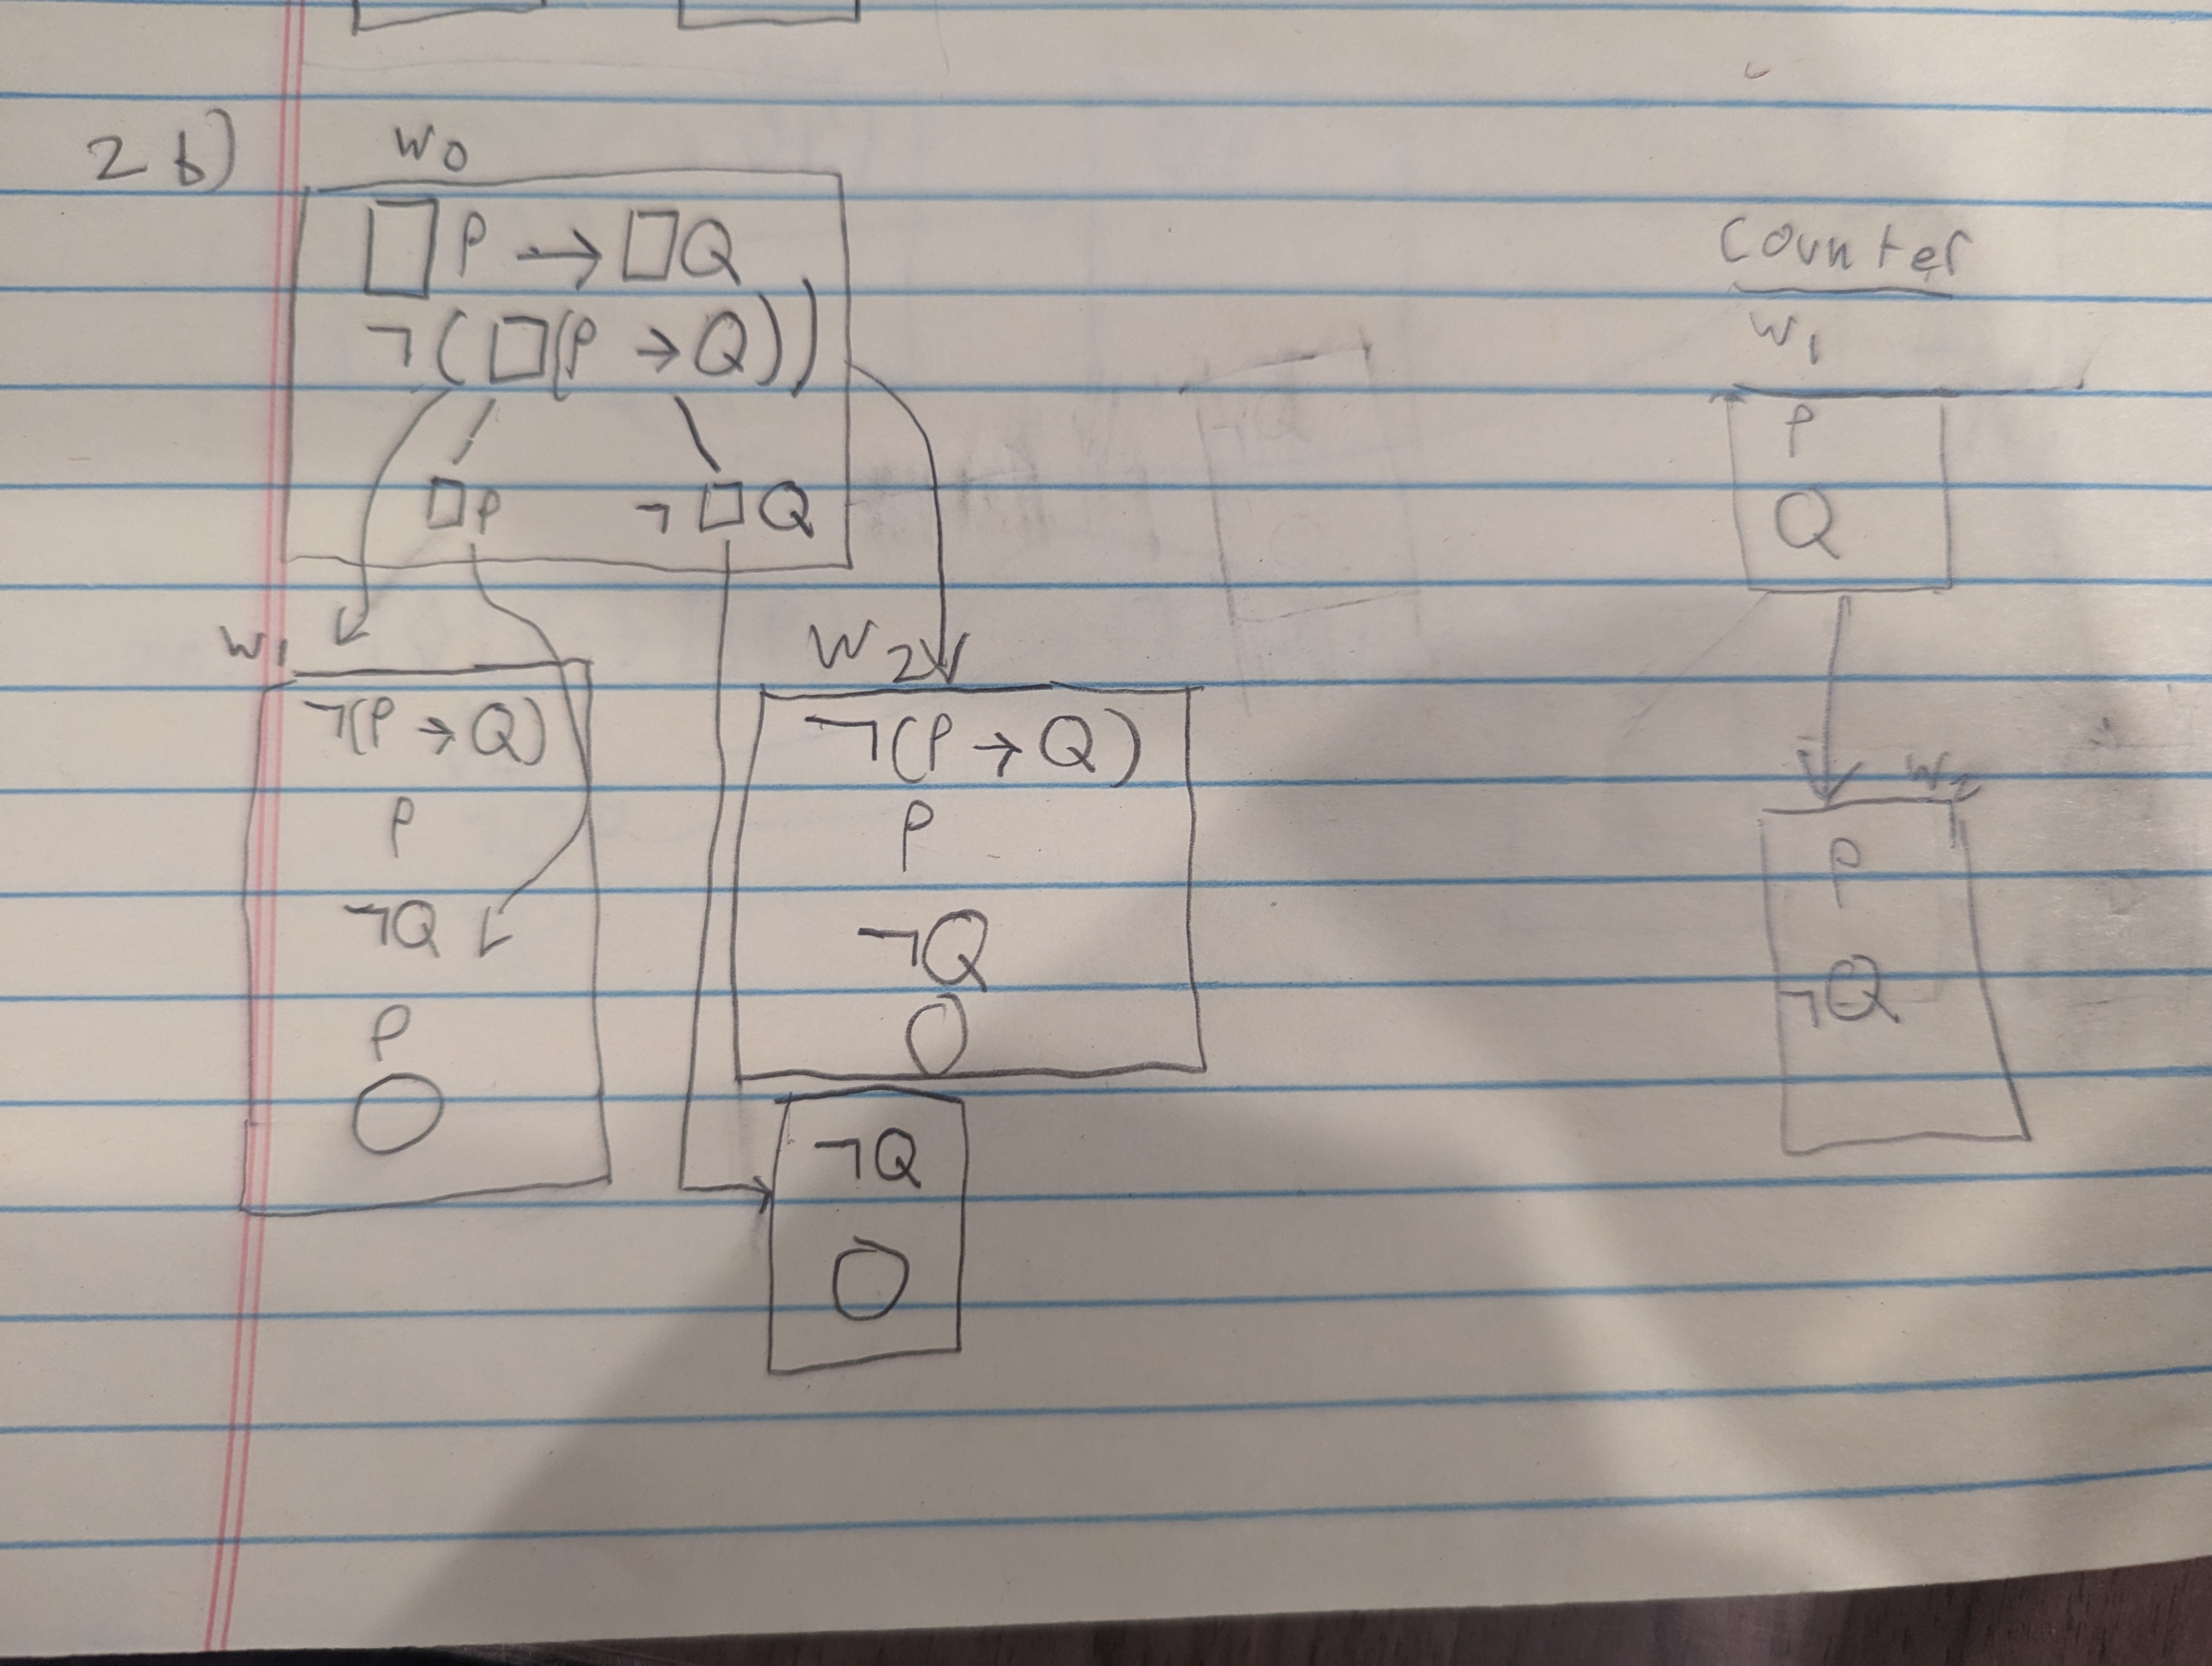 2b)
W0
□P → □Q
¬(□(P → Q))
□P ¬□Q
W1
¬(P → Q)
P
¬Q
P
O
W2
¬(P → Q)
P
¬Q
O
¬Q
O
Counter
W1
P
Q
W2
P
¬Q